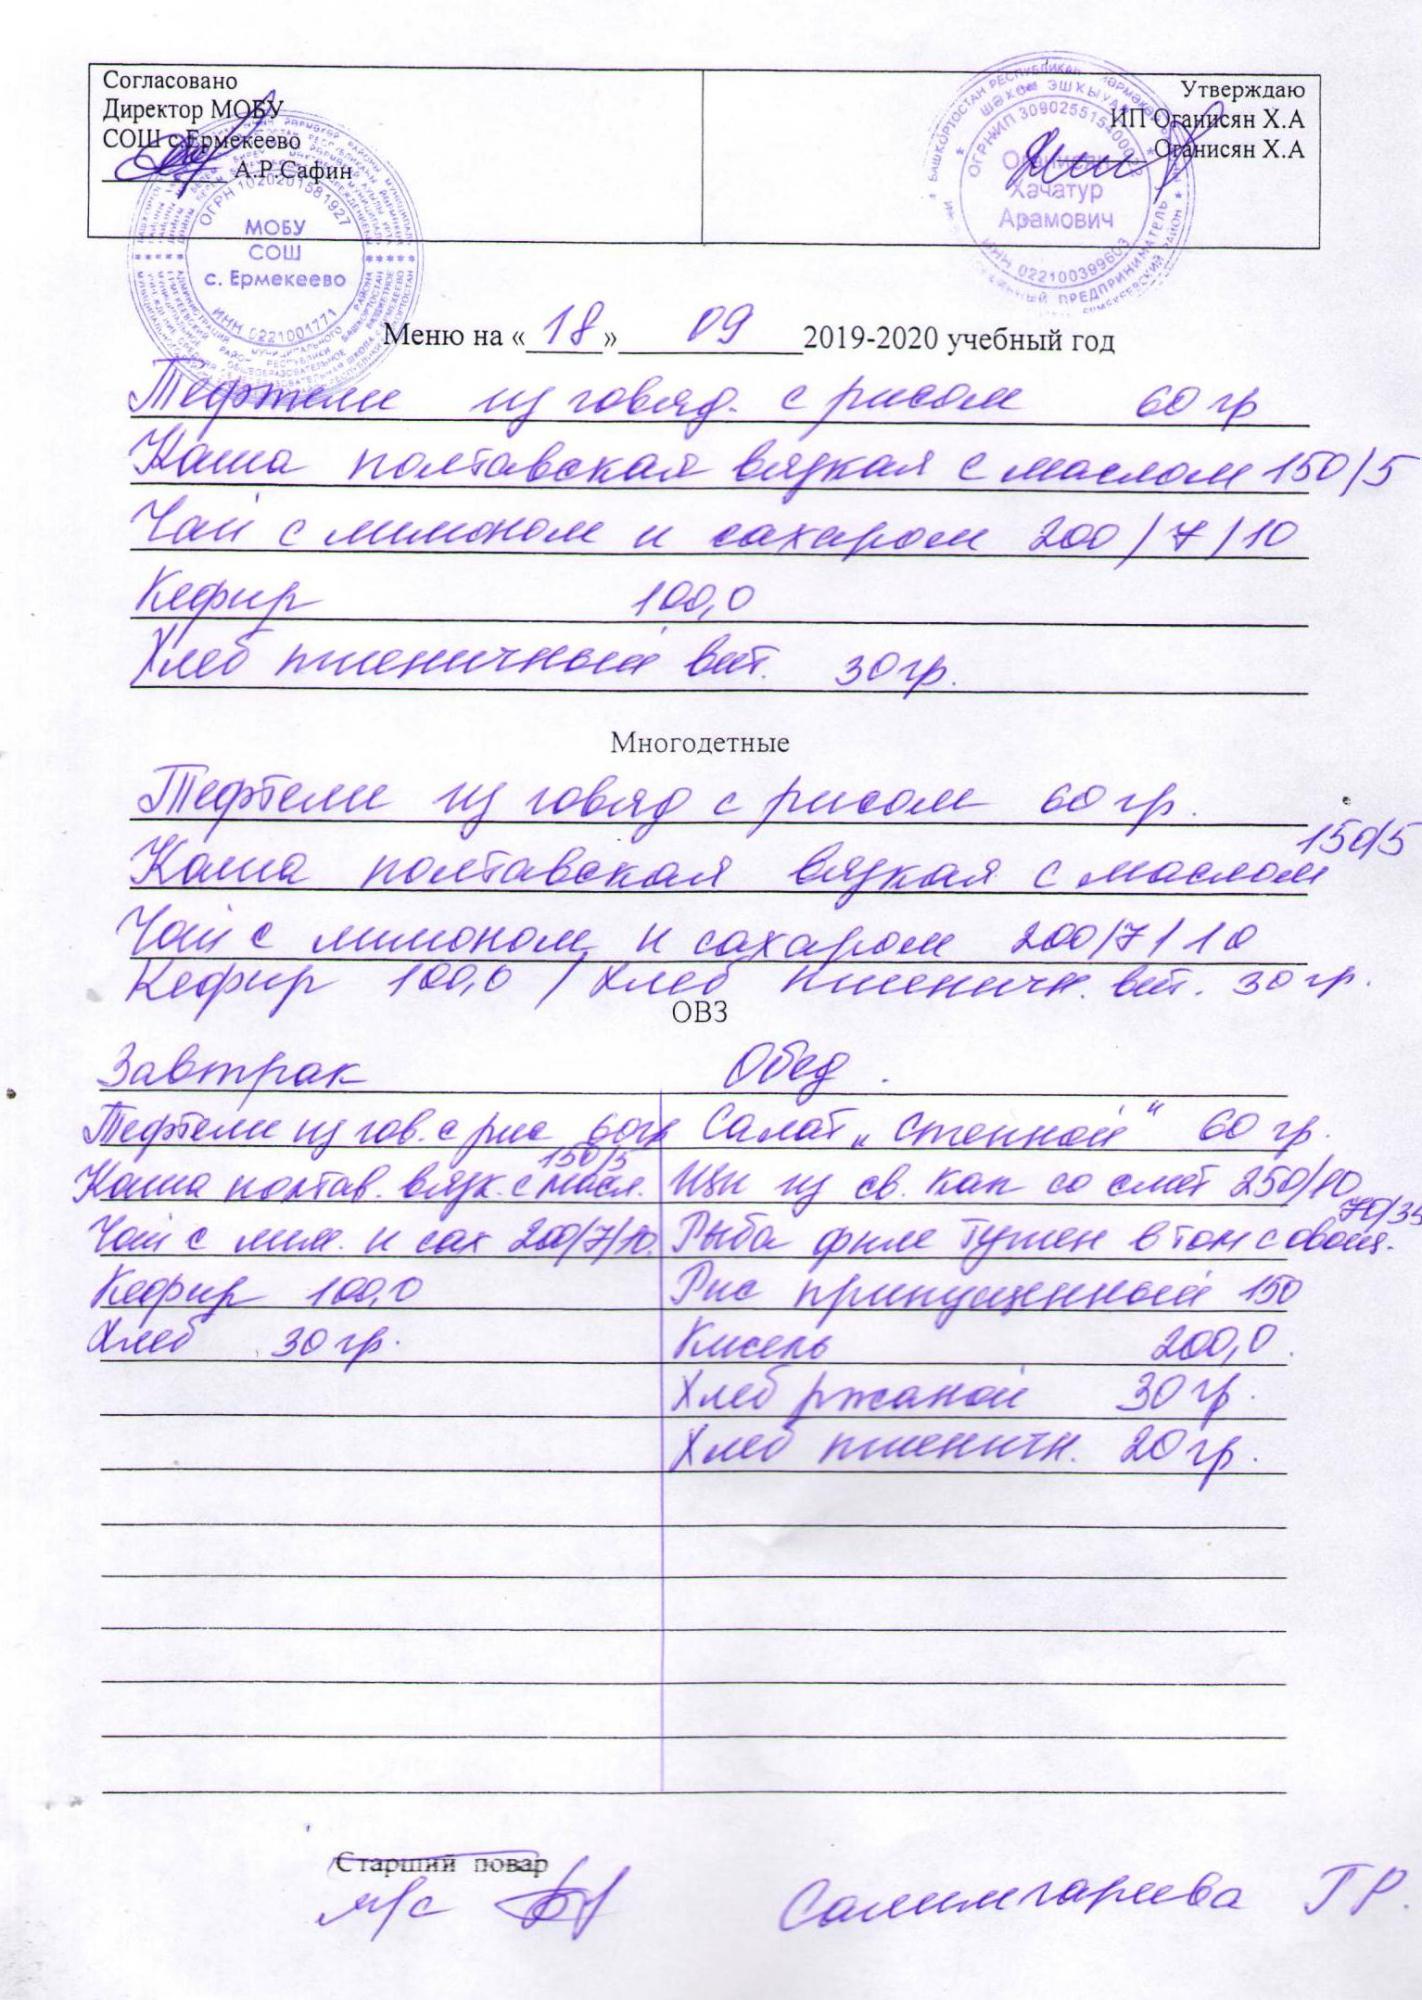 Согласовано
Директор МОБУ
СОШ с.Ермекеево
А.Р.Сафин
Утверждаю
ИП Оганисян Х.А
Оганисян Х.А
ОГРН 1020201581927
МОБУ
СОШ
с. Ермекеево
ИНН 0221001771
ОГРНИП
Хачатур
Арамович
ИНН 022100399603
Меню на «18» 09 2019-2020 учебный год
Тефтели из говяд. с рисом 60 гр
Каша полтавская вязкая с маслом 150/5
Чай с лимоном и сахаром 200/7/10
Кефир 100,0
Хлеб пшеничный вит. 30 гр.
Многодетные
Тефтели из говяд с рисом 60 гр.
Каша полтавская вязкая с маслом 150/5
Чай с лимоном и сахаром 200/7/10
Кефир 100,0 / Хлеб пшеничн. вит. 30 гр.
ОВЗ
Завтрак
Тефтели из гов. с рис 60гр
Каша полтав. вязк. с масл. 150/5
Чай с лим. и сах 200/7/10.
Кефир 100,0
Хлеб 30 гр.
Обед.
Салат „Степной“ 60 гр.
Щи из св. кап со смет 250/10
Рыба филе тушен в том с овощ. 70/35
Рис припущенный 150
Кисель 200,0.
Хлеб ржаной 30 гр.
Хлеб пшеничн. 20 гр.
Старший повар
м/с
Салимгареева Г.Р.